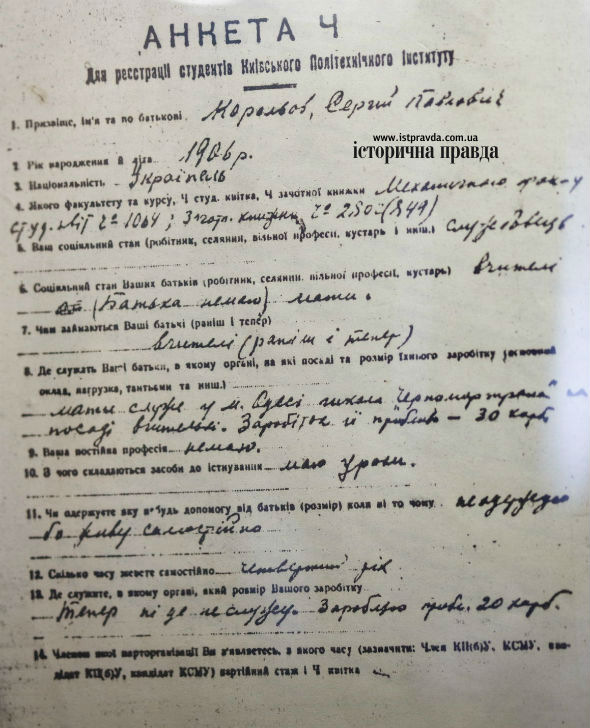 АНКЕТА Ч
Для реєстрації студентів Київського Політехнічного Інституту
1. Призвіще, ім'я та по батькові Корольов, Сергій Павлович
www.istpravda.com.ua
історична правда
2 Рік народження й літа 1906 р.
3. Національність Українець
4. Якого факультету та курсу, Ч студ. квитка, Ч зачотної книжки Механичного
студ. № 1064; Зачотн. книжки № 250
5. Ваш соціяльний стан (робітник, селянин, вільної професії, кустарь і инш.) службовець
6. Соціяльний стан Ваших батьків (робітник, селянин, вільної професії, кустарь) вчителі
(Батька немаю) мати.
7. Чим займаються Ваші батьчі (раніш і тепер)
вчителі (раніш і тепер)
8. Де служать Ваші батьки, в якому органі, на які посаді та розмір їхнього заробітку (основний
оклад, нагрузка, тантьєми та инш.)
мати служе у м. Одесі школа "Чорномортрана" на
посаді вчительки. Заробіток її приблизно – 30 карб
9. Ваша постійна професія немаю.
10. З чого складаються засоби до існування маю уроки.
11. Чи одержуєте яку небудь допомогу від батьків (розмір) коли ні то чому не одержую
бо живу самостійно
12. Скілько часу живете самостійно четвертий рік
13. Де служите, в якому органі, який розмір Вашого заробітку
Тепер ні де не служу. Заробляю прибл. 20 карб.
14. Членом якої парторганізації Ви з'являєтесь, з якого часу (зазначити: Член КП(б)У, КСМУ, кан-
дідат КП(б)У, кандідат КСМУ) партійний стаж і Ч квитка